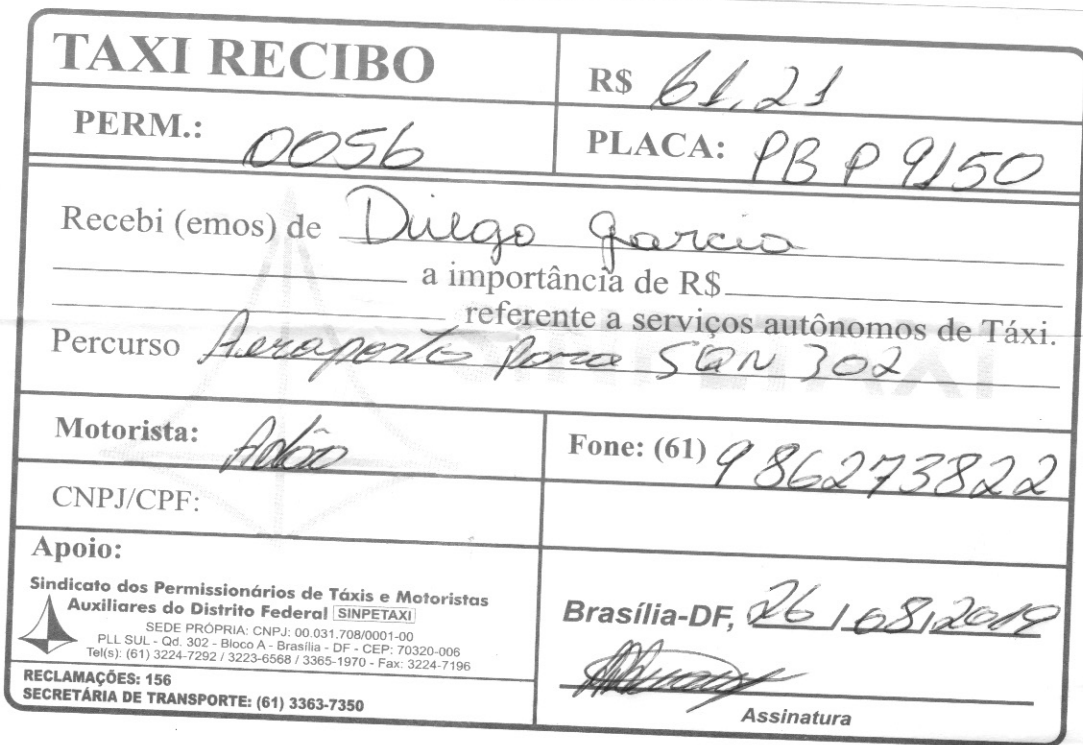 TAXI RECIBO
R$ 61,21
PERM.: 0056
PLACA: PBP 9150
Recebi (emos) de Diego Garcia
a importância de R$
referente a serviços autônomos de Táxi.
Percurso Aeroporto para SQN 302
Motorista: Adão
Fone: (61) 986273822
CNPJ/CPF:
Apoio:
Sindicato dos Permissionários de Táxis e Motoristas
Auxiliares do Distrito Federal SINPETAXI
SEDE PRÓPRIA: CNPJ: 00.031.708/0001-00
PLL SUL - Qd. 302 - Bloco A - Brasília - DF - CEP: 70320-006
Tel(s): (61) 3224-7292 / 3223-6568 / 3365-1970 - Fax: 3224-7196
RECLAMAÇÕES: 156
SECRETÁRIA DE TRANSPORTE: (61) 3363-7350
Brasília-DF, 26/08/2019
Assinatura